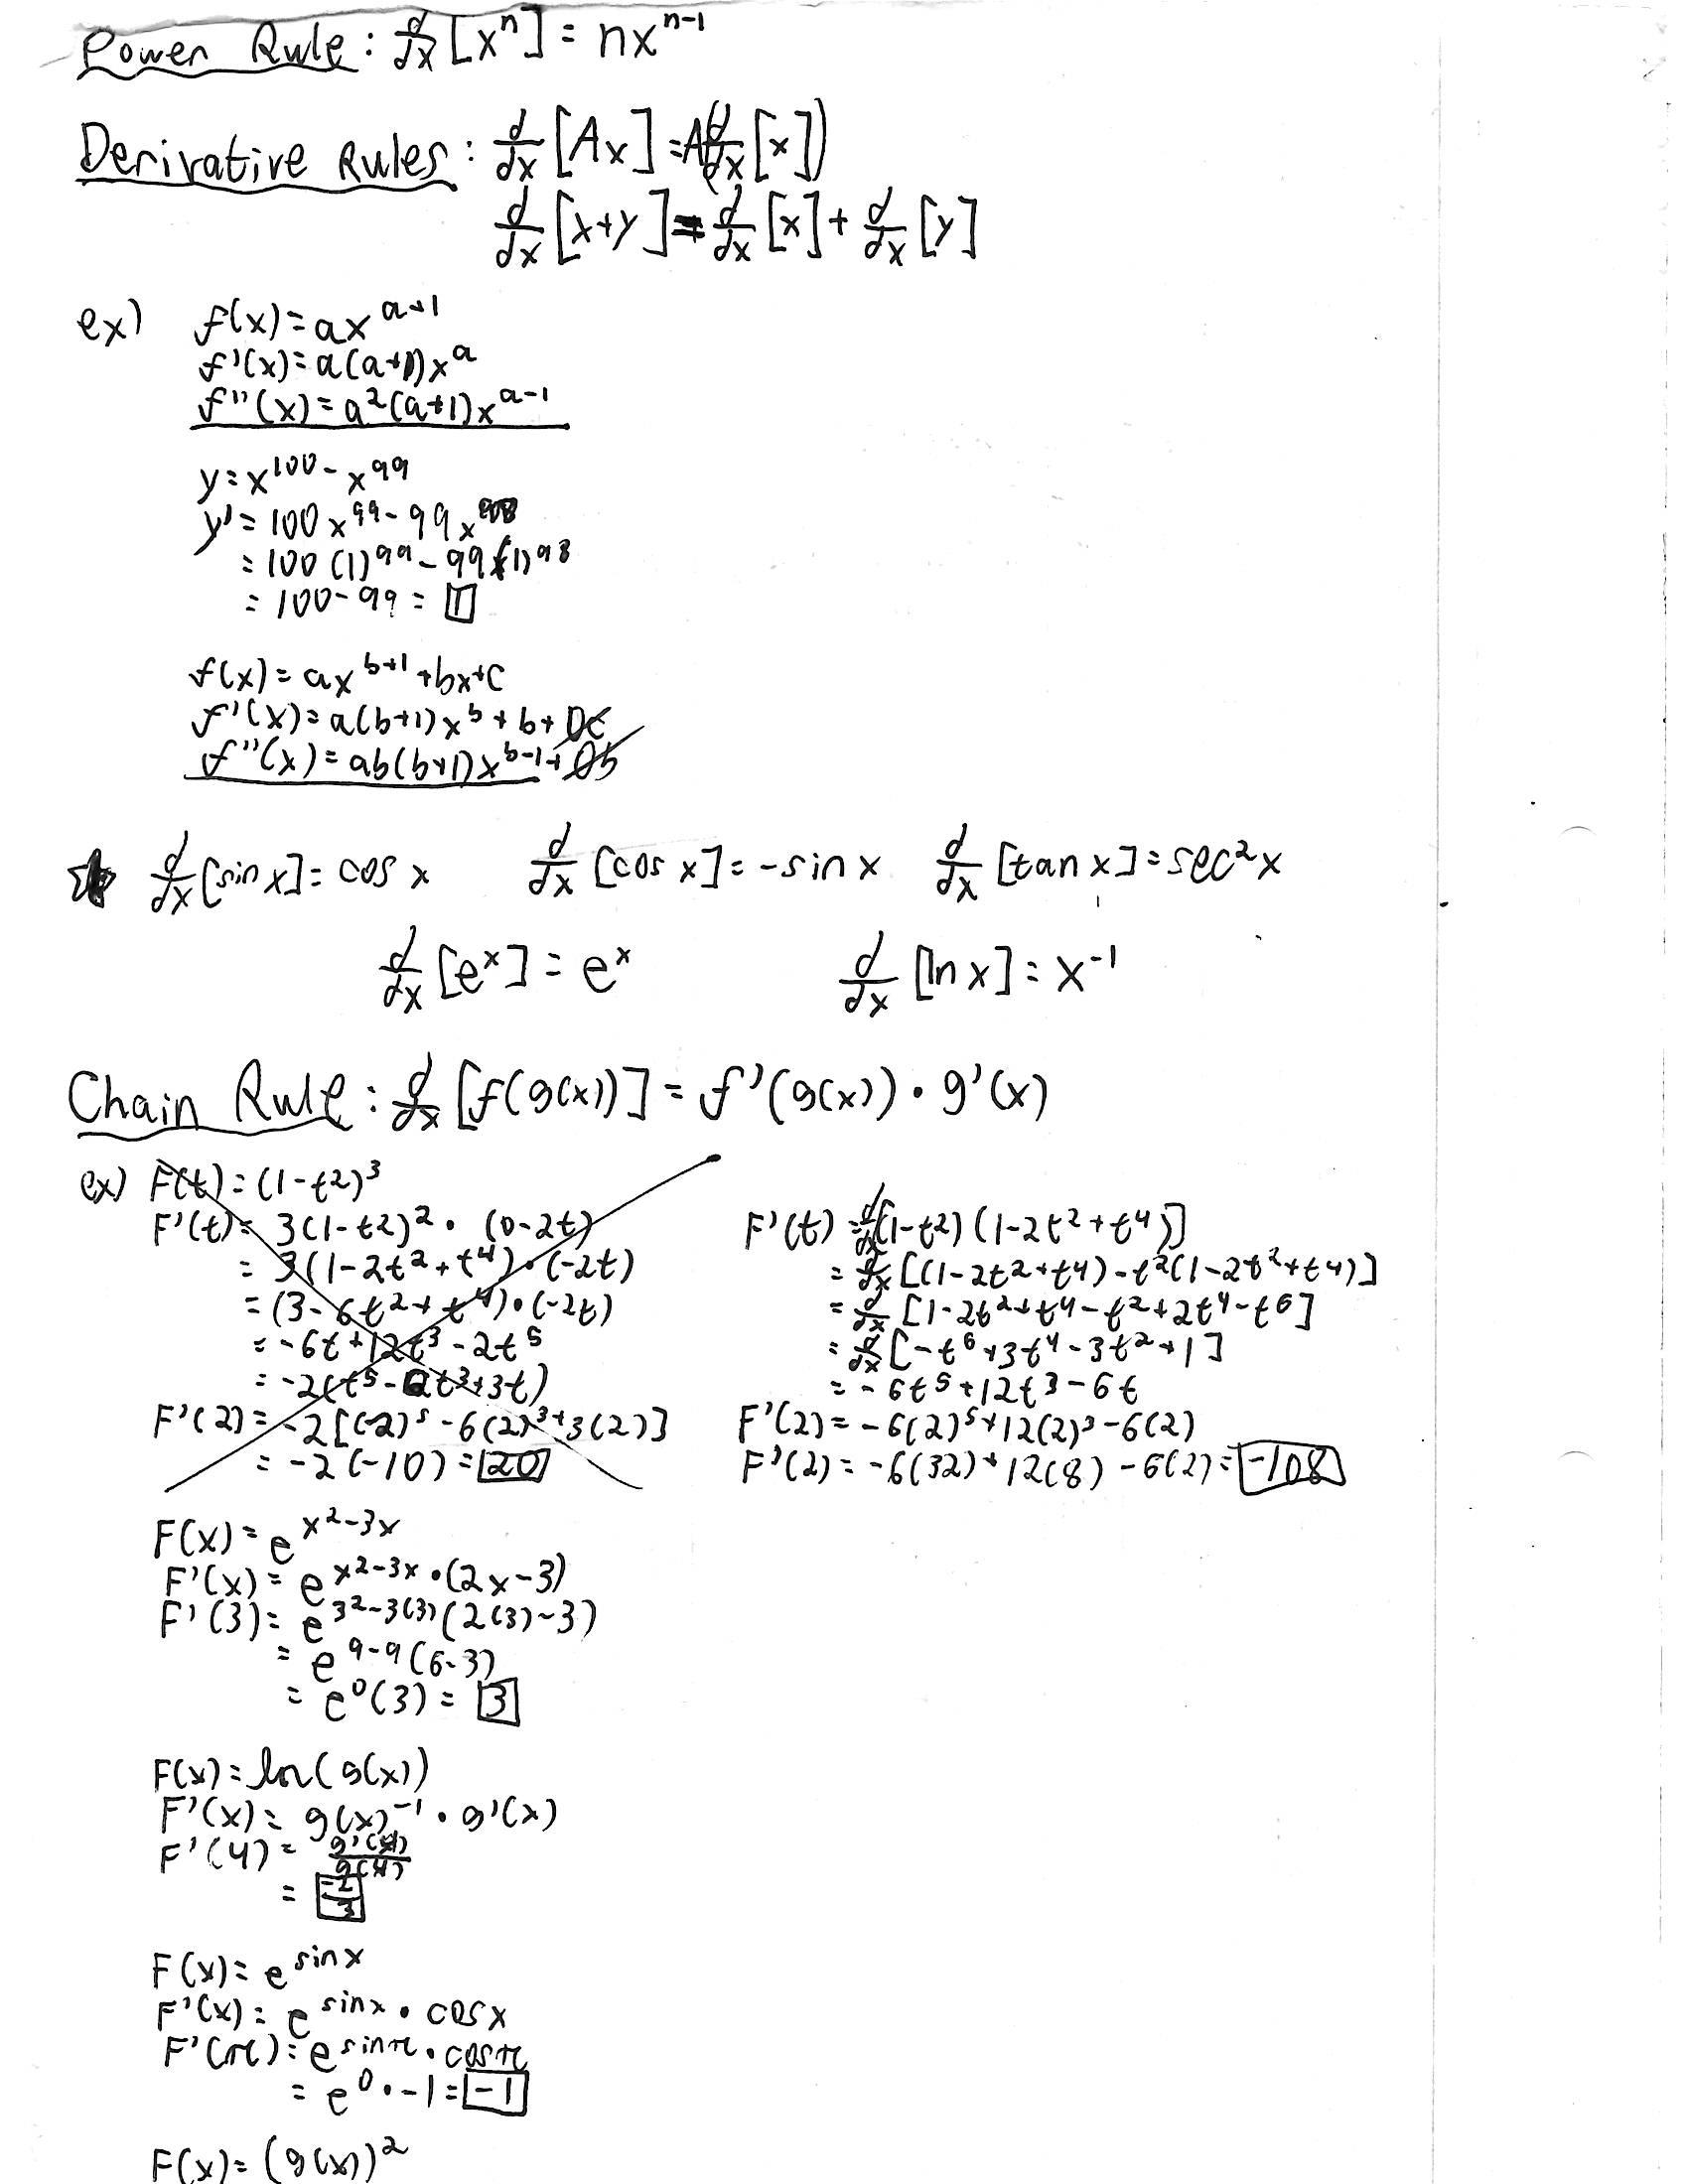 Power Rule: d/dx [xⁿ] = nxⁿ⁻¹
Derivative Rules: d/dx [Ax] = A(d/dx [x])
d/dx [x+y] = d/dx [x] + d/dx [y]
ex) f(x) = ax^(a+1)
f'(x) = a(a+1)x^a
f''(x) = a²(a+1)x^(a-1)
y = x¹⁰⁰ - x⁹⁹
y' = 100x⁹⁹ - 99x⁹⁸
= 100(1)⁹⁹ - 99(1)⁹⁸
= 100 - 99 = 1
f(x) = ax^(b+1) + bx + c
f'(x) = a(b+1)x^b + b + 0c
f''(x) = ab(b+1)x^(b-1) + 0b
d/dx [sin x] = cos x d/dx [cos x] = -sin x d/dx [tan x] = sec² x
d/dx [eˣ] = eˣ d/dx [ln x] = x⁻¹
Chain Rule: d/dx [f(g(x))] = f'(g(x)) · g'(x)
ex) F(t) = (1-t²)³
F'(t) = 3(1-t²)² · (0-2t)
= 3(1-2t²+t⁴) · (-2t)
= (3-6t²+t⁴) · (-2t)
= -6t+12t³-2t⁵
= -2(t⁵-6t³+3t)
F'(2) = -2[(-2)⁵-6(2)³+3(2)]
= -2(-10) = 20
F'(t) = d/dx [(1-t²)(1-2t²+t⁴)]
= d/dx [(1-2t²+t⁴)-t²(1-2t²+t⁴)]
= d/dx [1-2t²+t⁴-t²+2t⁴-t⁶]
= d/dx [-t⁶+3t⁴-3t²+1]
= -6t⁵+12t³-6t
F'(2) = -6(2)⁵+12(2)³-6(2)
F'(2) = -6(32)+12(8)-6(2) = -108
F(x) = e^(x²-3x)
F'(x) = e^(x²-3x) · (2x-3)
F'(3) = e^(3²-3(3)) (2(3)-3)
= e^(9-9) (6-3)
= e⁰(3) = 3
F(x) = ln(g(x))
F'(x) = g(x)⁻¹ · g'(x)
F'(4) = g'(4)/g(4)
= -2/3
F(x) = e^(sin x)
F'(x) = e^(sin x) · cos x
F'(π) = e^(sin π) · cos π
= e⁰ · -1 = -1
F(x) = (g(x))²